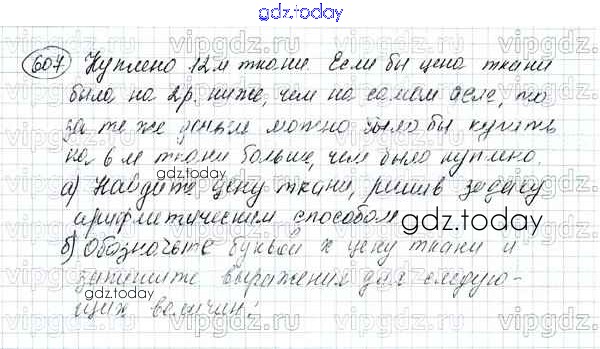 gdz.today
607 Куплено 12 м ткани. Если бы цена ткани
была на 2 р. ниже, чем на самом деле, то
за те же деньги можно было бы купить
на 6 м ткани больше, чем было куплено.
gdz.today
а) Найдите цену ткани, решив задачу
арифметическим способом
gdz.today
б) Обозначьте буквой х цену ткани и
запишите выражения для следую-
gdz.today
щих величин: